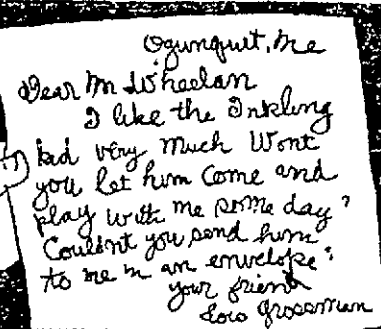 Ogunquit, Me
Dear Mr Wheelan
I like the Inkling
kid very much Wont
you let him come and
play with me some day?
Couldnt you send him
to me in an envelope?
your friend
Lois Grossman